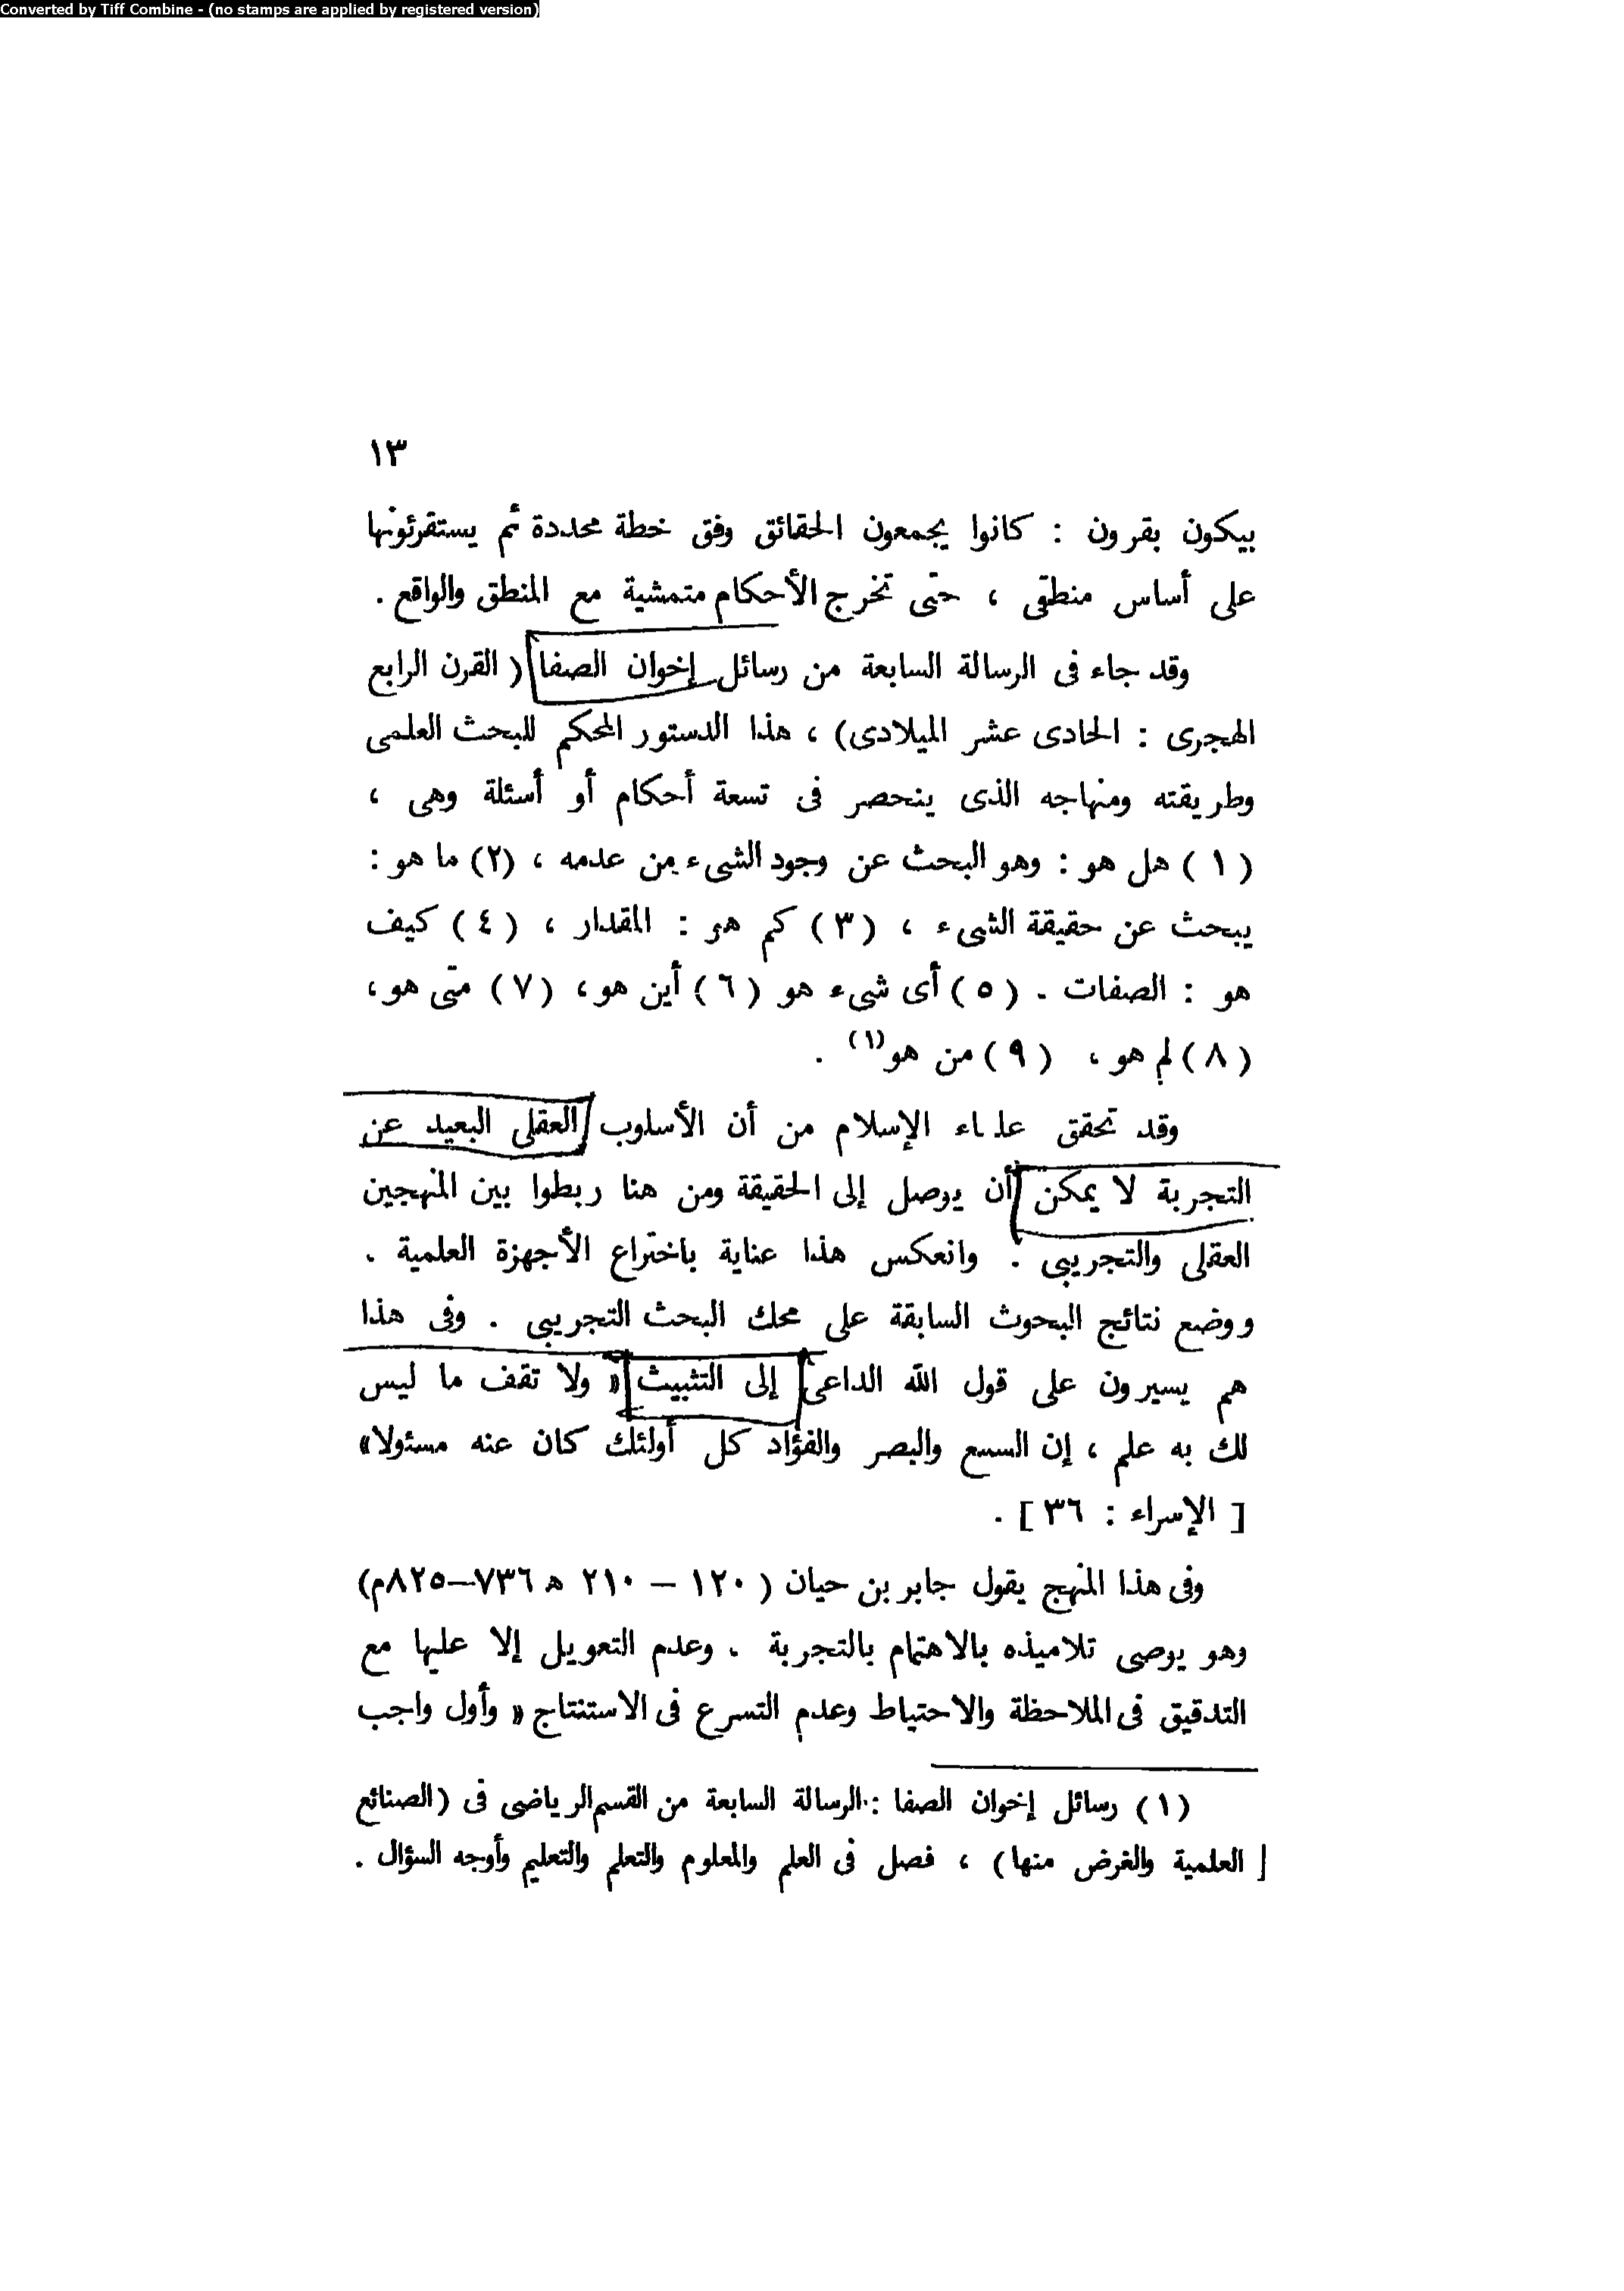 Converted by Tiff Combine - (no stamps are applied by registered version)
١٣
بيكون بقرون : كانوا يجمعون الحقائق وفق خطة محددة ثم يستقرئونها
على أساس منطقى ، حتى تخرج الأحكام متمشية مع المنطق والواقع .
وقد جاء فى الرسالة السابعة من رسائل إخوان الصفا ( القرن الرابع
الهجرى : الحادى عشر الميلادى) ، هذا الدستور المحكم للبحث العلمى
وطريقته ومنهاجه الذى ينحصر فى تسعة أحكام أو أسئلة وهى ،
( ١ ) هل هو : وهو البحث عن وجود الشىء من عدمه ، (٢) ما هو :
يبحث عن حقيقة الشىء ، (٣) كم هو : المقدار ، (٤) كيف
هو : الصفات . (٥) أى شىء هو (٦) أين هو ، (٧) متى هو ،
(٨) لم هو ، (٩) من هو(١) .
وقد تحقق علماء الإسلام من أن الأسلوب العقلى البعيد عن
التجربة لا يمكن أن يوصل إلى الحقيقة ومن هنا ربطوا بين المنهجين
العقلى والتجريبى . وانعكس هذا عناية باختراع الأجهزة العلمية .
ووضع نتائج البحوث السابقة على محك البحث التجريبى . وفى هذا
هم يسيرون على قول الله الداعى إلى التثبيت « ولا تقف ما ليس
لك به علم ، إن السمع والبصر والفؤاد كل أولئك كان عنه مسئولا»
[ الإسراء : ٣٦ ] .
وفى هذا المنهج يقول جابر بن حيان ( ١٢٠ – ٢١٠ ه ٧٣٦–٨٢٥م)
وهو يوصى تلاميذه بالاهتمام بالتجربة . وعدم التعويل إلا عليها مع
التدقيق فى الملاحظة والاحتياط وعدم التسرع فى الاستنتاج « وأول واجب
(١) رسائل إخوان الصفا : الرسالة السابعة من القسم الرياضى فى (الصنائع
العلمية والغرض منها) ، فصل فى العلم والمعلوم والتعلم والتعليم وأوجه السؤال .